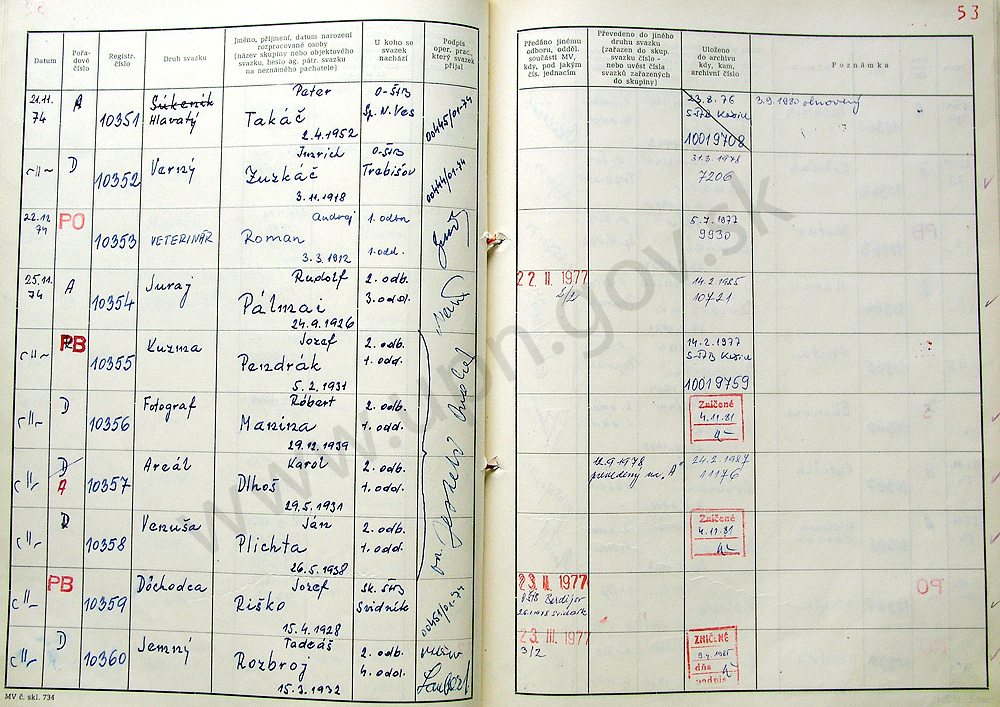 53
Datum
Pořa-
dové
číslo
Registr.
číslo
Druh svazku
Jméno, příjmení, datum narození
rozpracované osoby
(název skupiny nebo objektového
svazku, heslo ag. pátr. svazku
na neznámého pachatele)
U koho se
svazek
nachází
Podpis
oper. prac.,
který svazek
přijal
Předáno jinému
odboru, odděl.
součásti MV,
kdy, pod jakým
čís. jednacím
Převedeno do jiného
druhu svazku
(zařazen do skup.
svazku číslo -
nebo uvést čísla
svazků zařazených
do skupiny)
Uloženo
do archivu
kdy, kam,
archivní číslo
Poznámka
21.11.
74
A
10351
Súkeník
Hlavatý
Peter
Takáč
2.4.1952
O-ŠtB
Sp. N. Ves
00445/01-74
23.8.76
S-ŠtB Košice
10019708
3.9.1980 obnovený
-"-
D
10352
Verný
Juzrich
Zuzkáč
3.11.1918
O-ŠtB
Trebišov
00444/01-74
31.3.1978
7206
22.12
74
PO
10353
VETERINÁR
Andrej
Roman
3.3.1912
1. odbn
1. odd.
5.7.1977
9930
25.11.
74
A
10354
Juraj
Rudolf
Pálmai
24.9.1926
2. odb.
3. odd.
22.II.1977
2/2
14.2.1985
10721
-"-
PB
10355
Kuzma
Jozef
Pendrák
5.2.1931
2. odb.
1. odd.
14.2.1977
S-ŠtB Košice
10019759
-"-
D
10356
Fotograf
Róbert
Manina
29.12.1939
2. odb.
1. odd.
Zničené
4.11.81
-"-
D
A
10357
Areál
Karol
Dlhoš
29.5.1931
2. odb.
1. odd.
12.9.1978
prevedený na "A"
24.2.1987
11176
-"-
D
10358
Venuša
Ján
Plichta
26.5.1938
2. odb.
1. odd.
Zničené
4.11.81
-"-
PB
10359
Dôchodca
Jozef
Riško
15.4.1928
Sk. ŠtB
Svidník
00451/01-74
23.III.1977
-"-
D
10360
Jemný
Tadeáš
Rozbroj
15.3.1932
2. odb.
4. odd.
23.III.1977
3/2
ZNIČENÉ
dňa
podpis
MV č. skl. 734
www.upn.gov.sk